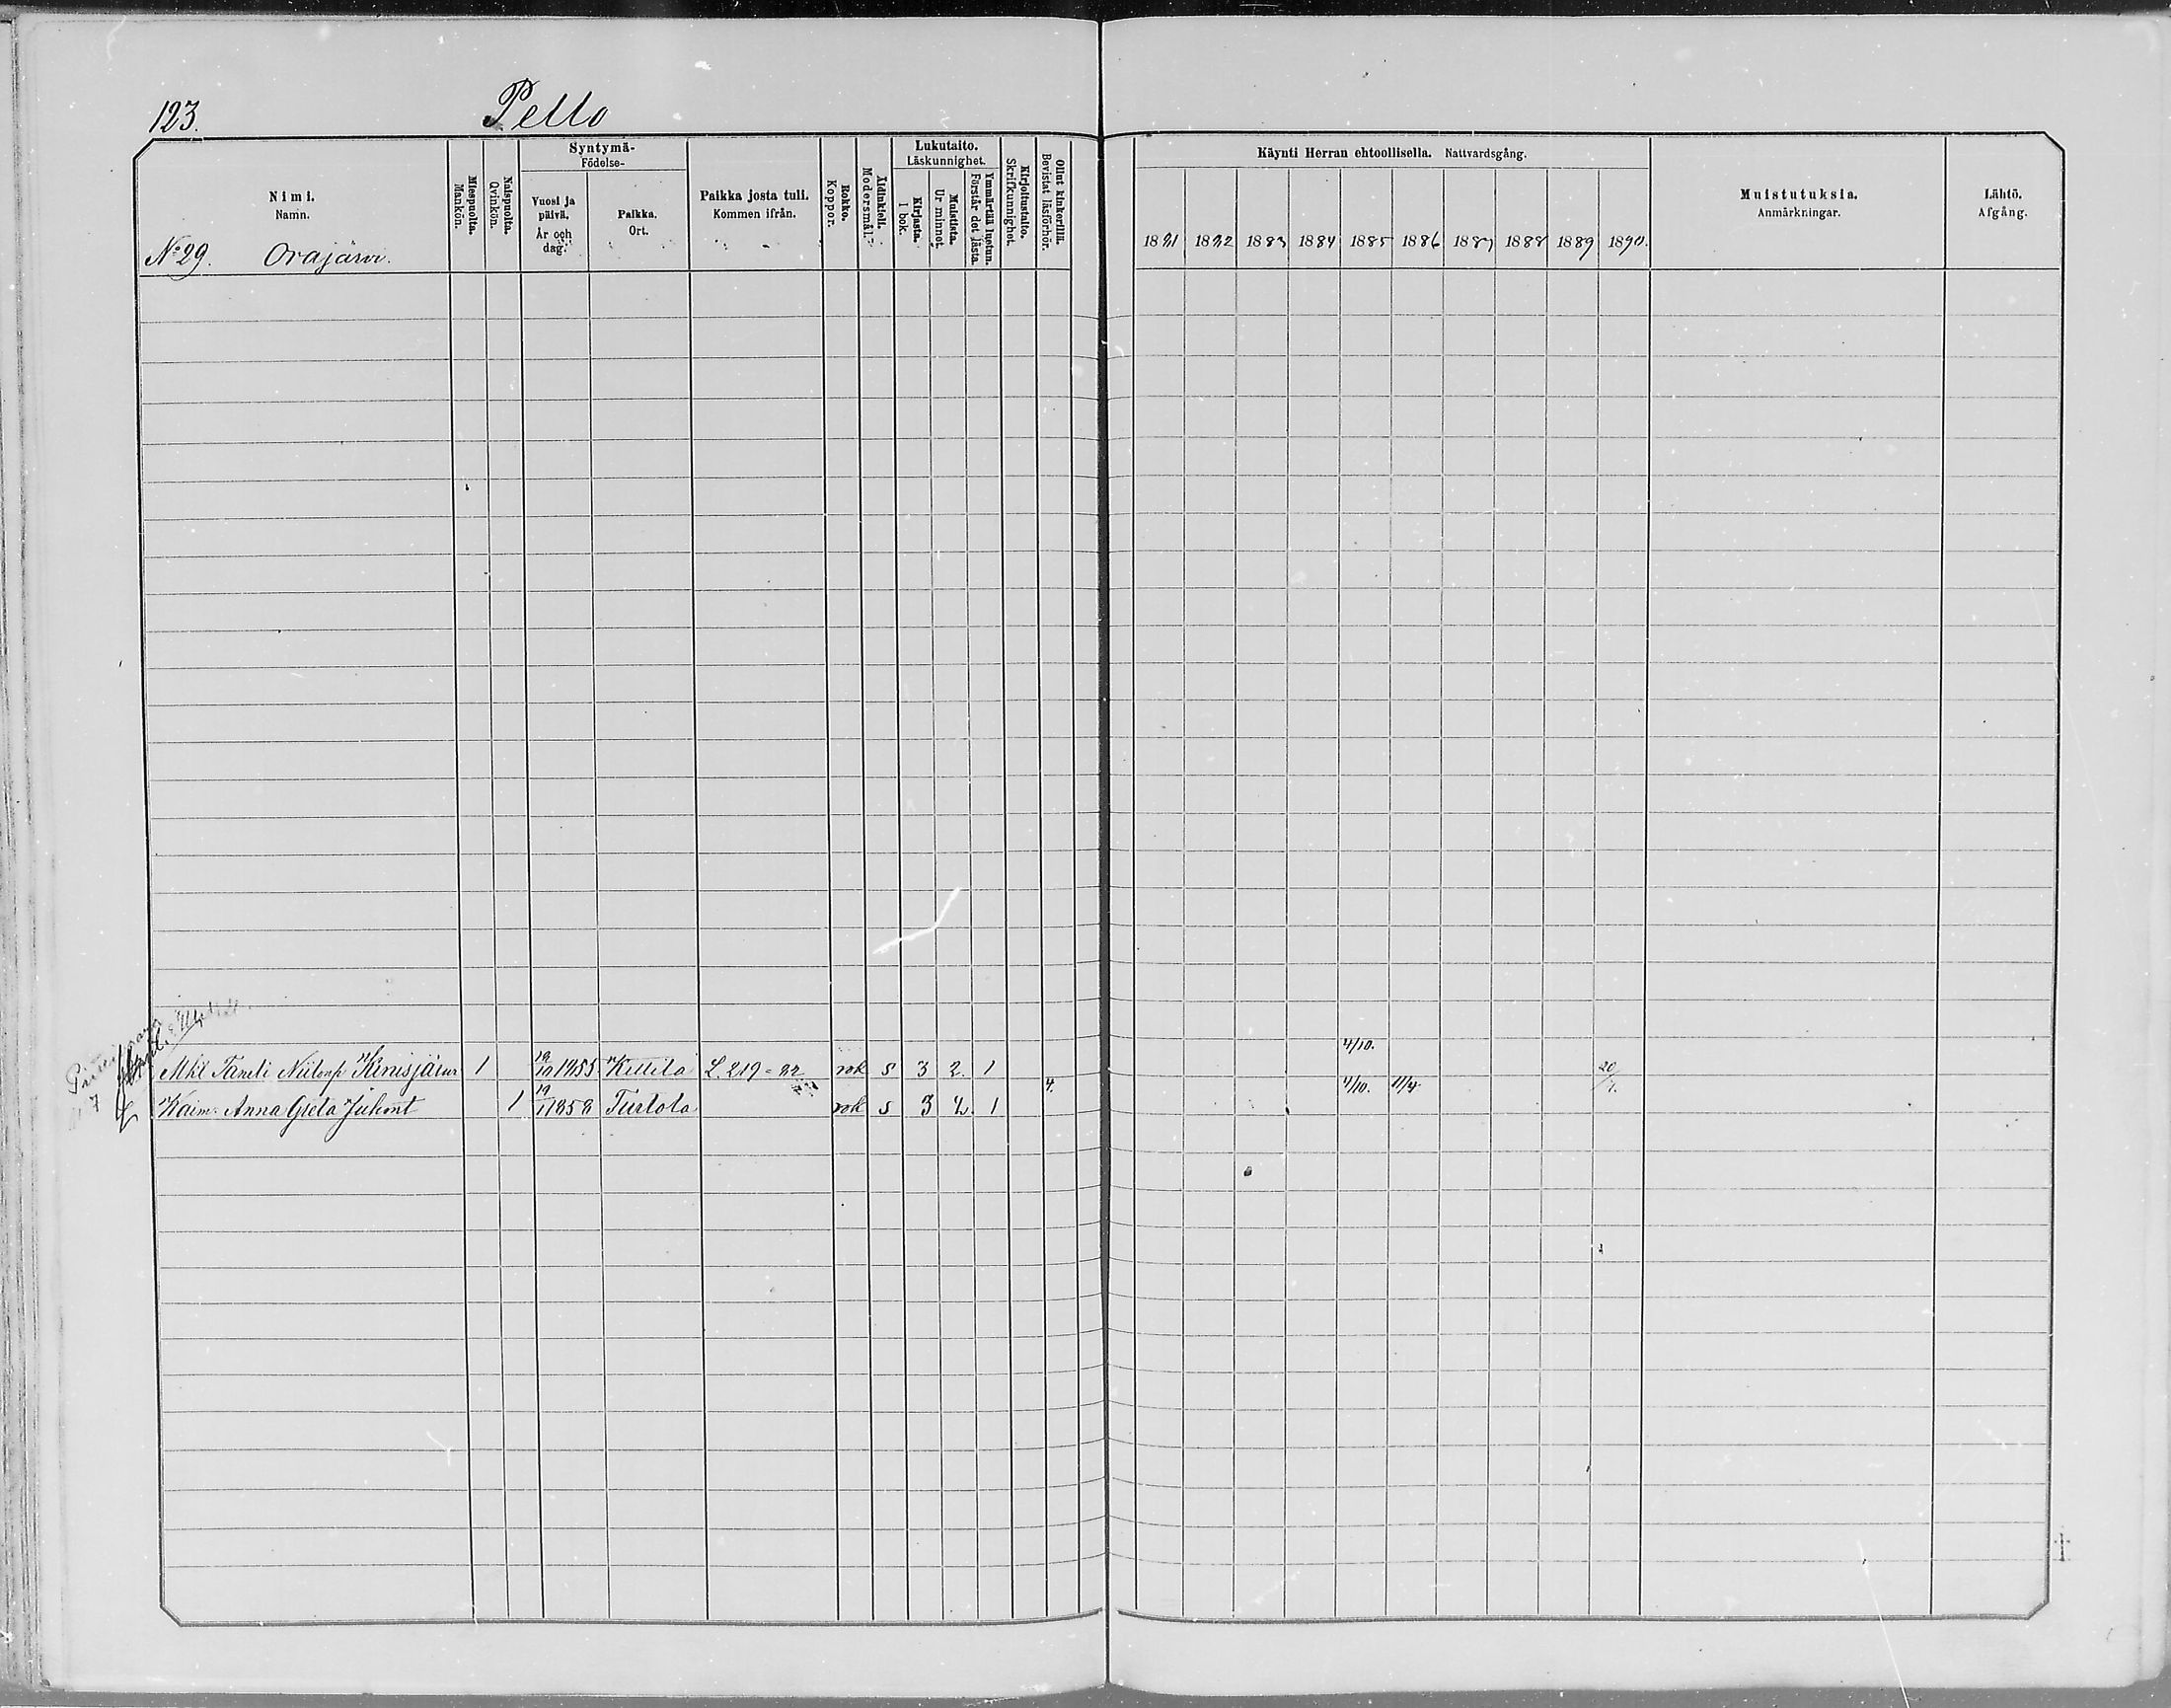 123. Pello
Syntymä-
Födelse-
Lukutaito.
Läskunnighet.
Nimi.
Namn.
Miespuolta.
Mankön.
Naispuolta.
Qvinkön.
Vuosi ja
päivä.
År och
dag.
Paikka.
Ort.
Paikka josta tuli.
Kommen ifrån.
Rokko.
Koppor.
Äidinkieli.
Modersmål.
Kirjasta.
I bok.
Muistista.
Ur minnet.
Ymmärtää luetun.
Förstår det lästa.
Kirjoitustaito.
Skrifkunnighet.
Ollut kinkerillä.
Bevistat läsförhör.
Käynti Herran ehtoollisella. Nattvardsgång.
1881 1882 1883 1884 1885 1886 1887 1888 1889 1890.
Muistutuksia.
Anmärkningar.
Lähtö.
Afgång.
No 29. Orajärvi.
4/10.
Mkl Taneli Niilonp Kinisjärvi 1 19/10 1855 Kittilä L. 219 = 82 rok s 3 2. 1
4. 4/10. 11/4. 20/7.
Waim. Anna Greta Juhont 1 19/1 1858 Turtola rok s 3 2. 1